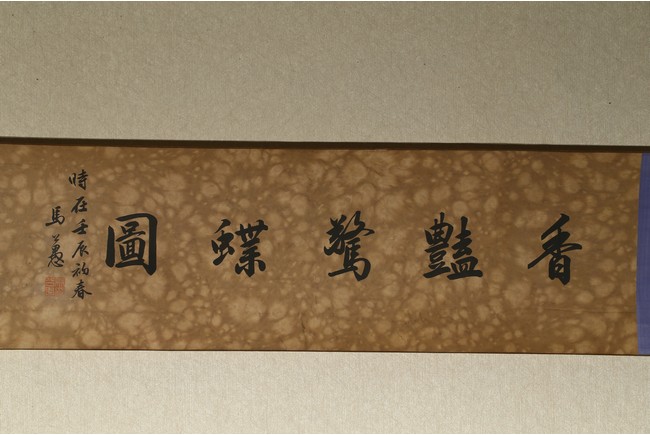 香豔驚蝶圖
時在壬辰初春
馬愚